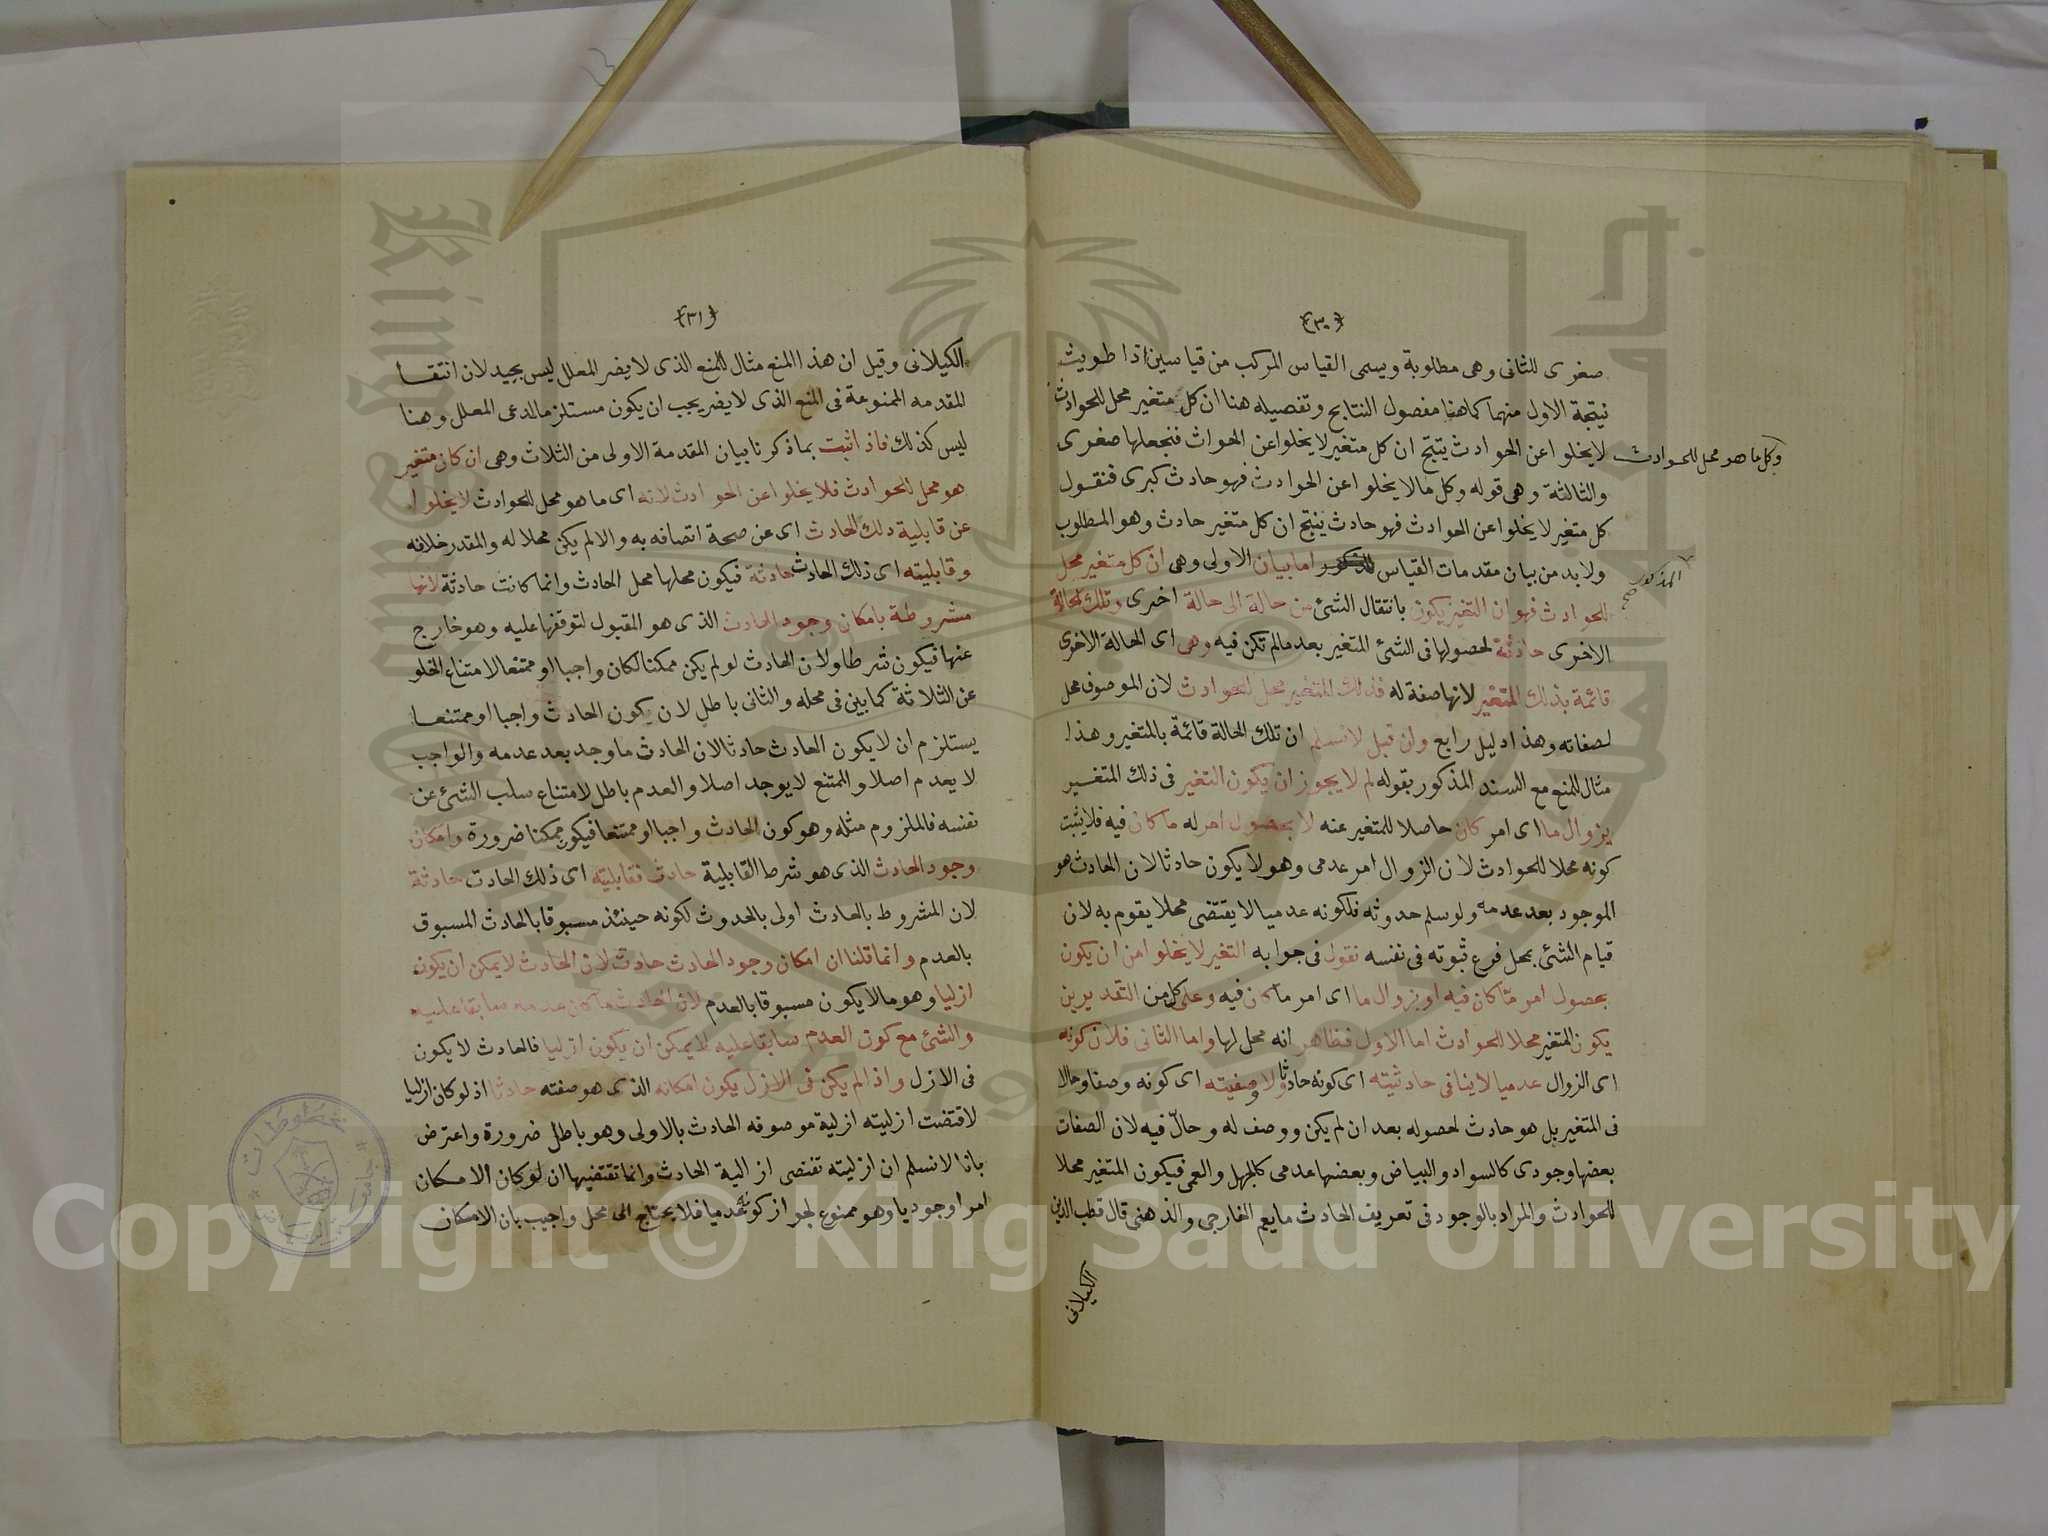 ﴿٣٠﴾
صغرى للثانى وهى مطلوبة ويسمى القياس المركب من قياسين اذا طويت
نيتجة الاول منهما كما هنا مفصول النتايج وتفصيله هنا ان كل متغير محل للحوادث
وكل ما هو محل للحوادث
لا يخلوا عن الحوادث ينتج ان كل متغير لا يخلوا عن الحوادث فنجعلها صغرى
والثالثة وهى قوله وكل ما لا يخلوا عن الحوادث فهو حادث كبرى فنقول
كل متغير لا يخلوا عن الحوادث فهو حادث ينتج ان كل متغير حادث وهو المطلوب
ولا بد من بيان مقدمات القياس اما بيان الاولى وهى ان كل متغير محل
المذكور صح
للحوادث فهو ان التغير يكون بانتقال الشئ من حالة الى حالة اخرى وتلك الحالة
الاخرى حادثة لحصولها فى الشئ المتغير بعد مالم تكن فيه وهى اى الحالة الاخرى
قائمة بذلك المتغير لانها صفة له فذلك المتغير محل للحوادث لان الموصوف محل
لصفاته وهذا دليل رابع وان قيل لا نسلم ان تلك الحالة قائمة بالمتغير وهذا
مثال للمنع مع السند المذكور بقوله لم لا يجوز ان يكون التغير فى ذلك المتغير
بزوال ما اى امر كان حاصلا للمتغير عنه لا بحصول امر له ما كان فيه فلا يثبت
كونه محلا للحوادث لان الزوال امر عدمى وهو لا يكون حادثا لان الحادث هو
الموجود بعد عدمه ولو سلم حدوثه فلكونه عدميا لا يقتضى محلا يقوم به لان
قيام الشئ بمحل فرع ثبوته فى نفسه نقول فى جوابه التغير لا يخلوا من ان يكون
بحصول امر ما كان فيه او بزوال ما اى امر ما كان فيه وعلى كل من التقديرين
يكون المتغير محلا للحوادث اما الاول فظاهر انه محل لها واما الثانى فلان كونه
اى الزوال عدميا لا ينافى حادثيته اى كونه حادثا ولا وصفيته اى كونه وصفا وحالا
فى المتغير بل هو حادث لحصوله بعد ان لم يكن ووصف له وحالّ فيه لان الصفات
بعضها وجودى كالسواد والبياض وبعضها عدمى كالجهل والعمى فيكون المتغير محلا
للحوادث والمراد بالوجود فى تعريف الحادث ما يعم الخارجى والذهنى قال قطب الدين
الكيلانى
﴿٣١﴾
الكيلانى وقيل ان هذا المنع مثال للمنع الذى لا يضر المعلل ليس بجيد لان انتفا
المقدمه الممنوعة فى المنع الذى لا يضر يجب ان يكون مستلزما لدعى المعلل وهنا
ليس كذلك فاذا ثبت بما ذكرنا بيان المقدمة الاولى من الثلاث وهى ان كان متغير
هو محل الحوادث فلا يخلوا عن الحوادث لانه اى ما هو محل للحوادث لا يخلوا
عن قابلية ذلك الحادث اى عن صحة اتصافه به والا لم يكن محلا له والمقدر خلافه
وقابليته اى ذلك الحادث حادثة فيكون محلها محل الحادث وانما كانت حادثة لانها
مشروطة بامكان وجود الحادث الذى هو المقبول لتوقفها عليه وهو خارج
عنها فيكون شرطا ولان الحادث لو لم يكن ممكنا لكان واجبا او ممتنعا لا متناع الخلو
عن الثلاثة كما بين فى محله والثانى باطل لان يكون الحادث واجبا او ممتنعا
يستلزم ان لا يكون الحادث حادثا لان الحادث ما وجد بعد عدمه والواجب
لا يعدم اصلا والممتنع لا يوجد اصلا والعدم باطل لامتناع سلب الشئ عن
نفسه فالملزوم مثله وهو كون الحادث واجبا او ممتنعا فيكون ممكنا ضرورة وامكان
وجود الحادث الذى هو شرط القابلية حادث فقابليته اى ذلك الحادث حادثة
لان المشروط بالحادث اولى بالحدوث لكونه حينئذ مسبوقا بالحادث المسبوق
بالعدم وانما قلنا ان امكان وجود الحادث حادث لان الحادث لا يمكن ان يكون
ازليا وهو مالا يكون مسبوقا بالعدم لان الحادث ما كان عدمه سابقا عليه
والشئ مع كون العدم سابقا عليه لا يمكن ان يكون ازليا فالحادث لا يكون
فى الازل واذا لم يكن فى الازل يكون امكانه الذى هو صفته حادثا اذ لو كان ازليا
لاقتضت ازليته ازلية موصوفه الحادث بالاولى وهو باطل ضرورة واعترض
بانا لا نسلم ان ازليته تقتضى ازالية الحادث وانما تقتضيها ان لو كان الامكان
امرا وجوديا وهو ممنوع لجواز كونه عدميا فلا يحتاج الى محل واجيب بان الامكان
Copyright © King Saud University